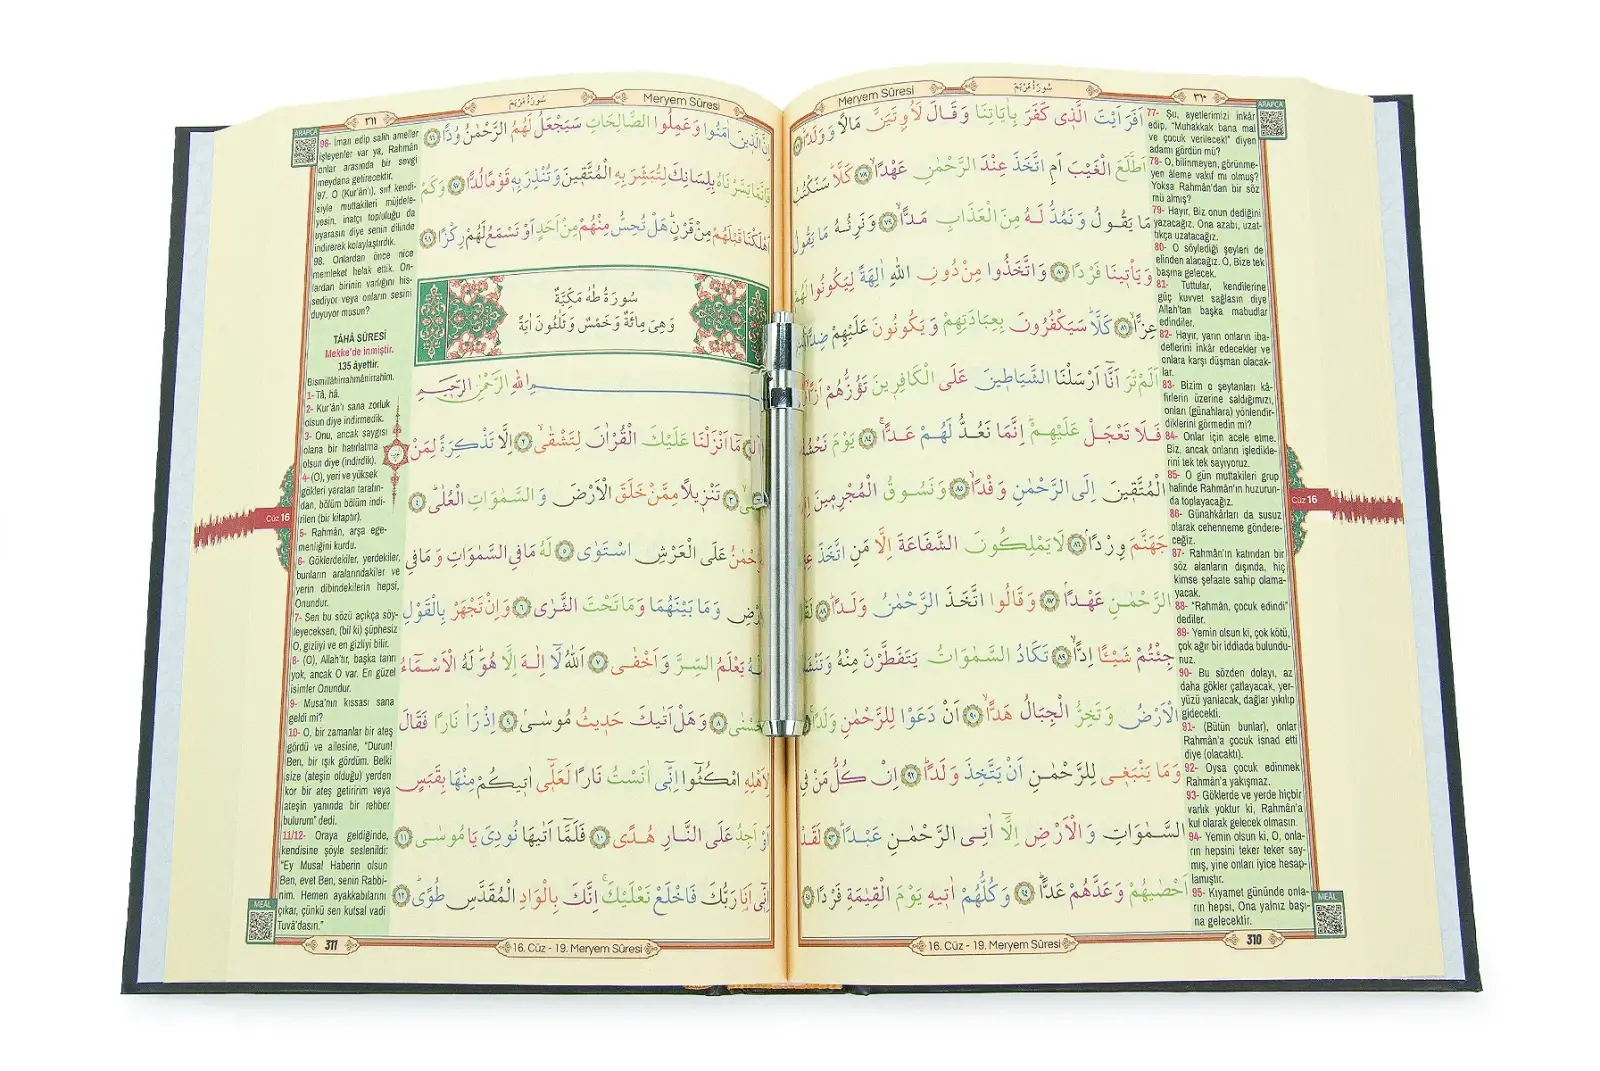 سُورَةُ مَرْيَمَ
Meryem Sûresi
٣١٠
ARAPÇA
اَفَرَاَيْتَ الَّذٖى كَفَرَ بِاٰيَاتِنَا وَقَالَ لَاُوتَيَنَّ مَالًا وَوَلَدًا
اَطَّلَعَ الْغَيْبَ اَمِ اتَّخَذَ عِنْدَ الرَّحْمٰنِ عَهْدًا ﴿٧٨﴾ كَلَّا سَنَكْتُبُ
مَا يَقُولُ وَنَمُدُّ لَهُ مِنَ الْعَذَابِ مَدًّا ﴿٧٩﴾ وَنَرِثُهُ مَا يَقُولُ
وَيَأْتٖينَا فَرْدًا ﴿٨٠﴾ وَاتَّخَذُوا مِنْ دُونِ اللّٰهِ اٰلِهَةً لِيَكُونُوا لَهُمْ
عِزًّا ﴿٨١﴾ كَلَّا سَيَكْفُرُونَ بِعِبَادَتِهِمْ وَيَكُونُونَ عَلَيْهِمْ ضِدًّا
اَلَمْ تَرَ اَنَّا اَرْسَلْنَا الشَّيَاطٖينَ عَلَى الْكَافِرٖينَ تَؤُزُّهُمْ اَزًّا
فَلَا تَعْجَلْ عَلَيْهِمْ اِنَّمَا نَعُدُّ لَهُمْ عَدًّا ﴿٨٤﴾ يَوْمَ نَحْشُرُ
الْمُتَّقٖينَ اِلَى الرَّحْمٰنِ وَفْدًا ﴿٨٥﴾ وَنَسُوقُ الْمُجْرِمٖينَ
جَهَنَّمَ وِرْدًا ﴿٨٦﴾ لَا يَمْلِكُونَ الشَّفَاعَةَ اِلَّا مَنِ اتَّخَذَ
الرَّحْمٰنِ عَهْدًا ﴿٨٧﴾ وَقَالُوا اتَّخَذَ الرَّحْمٰنُ وَلَدًا ﴿٨٨﴾
جِئْتُمْ شَيْـًٔا اِدًّا ﴿٨٩﴾ تَكَادُ السَّمٰوَاتُ يَتَفَطَّرْنَ مِنْهُ وَتَنْشَقُّ
الْاَرْضُ وَتَخِرُّ الْجِبَالُ هَدًّا ﴿٩٠﴾ اَنْ دَعَوْا لِلرَّحْمٰنِ وَلَدًا
وَمَا يَنْبَغٖى لِلرَّحْمٰنِ اَنْ يَتَّخِذَ وَلَدًا ﴿٩٢﴾ اِنْ كُلُّ مَنْ فِى
السَّمٰوَاتِ وَالْاَرْضِ اِلَّا اٰتِى الرَّحْمٰنِ عَبْدًا ﴿٩٣﴾ لَقَدْ
اَحْصٰيهُمْ وَعَدَّهُمْ عَدًّا ﴿٩٤﴾ وَكُلُّهُمْ اٰتٖيهِ يَوْمَ الْقِيٰمَةِ فَرْدًا
77- Şu, ayetlerimizi inkâr
edip, "Muhakkak bana mal
ve çocuk verilecek!" diyen
adamı gördün mü?
78- O, bilinmeyen, görünme-
yen âleme vakıf mı olmuş?
Yoksa Rahmân'dan bir söz
mü almış?
79- Hayır, Biz onun dediğini
yazacağız. Ona azabı, uzat-
tıkça uzatacağız.
80- O söylediği şeyleri de
elinden alacağız. O, Bize tek
başına gelecek.
81- Tuttular, kendilerine
güç kuvvet sağlasın diye
Allah'tan başka mabudlar
edindiler.
82- Hayır, yarın onların iba-
detlerini inkâr edecekler ve
onlara karşı düşman olacak-
lar.
83- Bizim o şeytanları kâ-
firlerin üzerine saldığımızı,
onları (günahlara) yönlendir-
diklerini görmedin mi?
84- Onlar için acele etme.
Biz, ancak onların işledikle-
rini tek tek sayıyoruz.
85- O gün muttakileri grup
halinde Rahmân'ın huzurun-
da toplayacağız.
86- Günahkârları da susuz
olarak cehenneme göndere-
ceğiz.
87- Rahmân'ın katından bir
söz alanların dışında, hiç
kimse şefaate sahip olama-
yacak.
88- "Rahmân, çocuk edindi"
dediler.
89- Yemin olsun ki, çok kötü,
çok ağır bir iddiada bulundu-
nuz.
90- Bu sözden dolayı, az
daha gökler çatlayacak, yer-
yüzü yarılacak, dağlar yıkılıp
gidecekti.
91- (Bütün bunlar), onlar
Rahmân'a çocuk isnad etti
diye (olacaktı).
92- Oysa çocuk edinmek
Rahmân'a yakışmaz.
93- Göklerde ve yerde hiçbir
varlık yoktur ki, Rahmân'a
kul olarak gelecek olmasın.
94- Yemin olsun ki, O, onla-
rın hepsini teker teker say-
mış, yine onları iyice hesap-
lamıştır.
95- Kıyamet gününde onla-
rın hepsi, Ona yalnız başı-
na gelecektir.
Cüz 16
MEÂL
16. Cüz - 19. Meryem Sûresi
310
سُورَةُ مَرْيَمَ
Meryem Sûresi
٣١١
ARAPÇA
اِنَّ الَّذٖينَ اٰمَنُوا وَعَمِلُوا الصَّالِحَاتِ سَيَجْعَلُ لَهُمُ الرَّحْمٰنُ وُدًّا ﴿٩٦﴾
فَاِنَّمَا يَسَّرْنَاهُ بِلِسَانِكَ لِتُبَشِّرَ بِهِ الْمُتَّقٖينَ وَتُنْذِرَ بِهٖ قَوْمًا لُدًّا ﴿٩٧﴾ وَكَمْ
اَهْلَكْنَا قَبْلَهُمْ مِنْ قَرْنٍ هَلْ تُحِسُّ مِنْهُمْ مِنْ اَحَدٍ اَوْ تَسْمَعُ لَهُمْ رِكْزًا ﴿٩٨﴾
سُورَةُ طٰهٰ مَكِّيَّةٌ
وَهِىَ مِائَةٌ وَخَمْسٌ وَثَلٰثُونَ اٰيَةً
بِسْمِ اللّٰهِ الرَّحْمٰنِ الرَّحٖيمِ
مَا اَنْزَلْنَا عَلَيْكَ الْقُرْاٰنَ لِتَشْقٰى ﴿٢﴾ اِلَّا تَذْكِرَةً لِمَنْ
﴿٣﴾ تَنْزٖيلًا مِمَّنْ خَلَقَ الْاَرْضَ وَالسَّمٰوَاتِ الْعُلٰى ﴿٤﴾
عَلَى الْعَرْشِ اسْتَوٰى ﴿٥﴾ لَهُ مَا فِى السَّمٰوَاتِ وَمَا فِى
وَمَا بَيْنَهُمَا وَمَا تَحْتَ الثَّرٰى ﴿٦﴾ وَاِنْ تَجْهَرْ بِالْقَوْلِ
يَعْلَمُ السِّرَّ وَاَخْفٰى ﴿٧﴾ اَللّٰهُ لَا اِلٰهَ اِلَّا هُوَ لَهُ الْاَسْمَاءُ
﴿٨﴾ وَهَلْ اَتٰيكَ حَدٖيثُ مُوسٰى ﴿٩﴾ اِذْ رَاٰ نَارًا فَقَالَ
لِاَهْلِهِ امْكُثُوا اِنّٖى اٰنَسْتُ نَارًا لَعَلّٖى اٰتٖيكُمْ مِنْهَا بِقَبَسٍ
اَوْ اَجِدُ عَلَى النَّارِ هُدًى ﴿١٠﴾ فَلَمَّا اَتٰيهَا نُودِىَ يَا مُوسٰى ﴿١١﴾
اِنّٖى اَنَا رَبُّكَ فَاخْلَعْ نَعْلَيْكَ اِنَّكَ بِالْوَادِ الْمُقَدَّسِ طُوًى ﴿١٢﴾
96- İman edip salih ameller
işleyenler var ya, Rahmân
onlar arasında bir sevgi
meydana getirecektir.
97. O (Kur'ân'ı), sırf kendi-
siyle muttakileri müjdele-
yesin, inatçı topluluğu da
uyarasın diye senin dilinde
indirerek kolaylaştırdık.
98. Onlardan önce nice
memleket helak ettik. On-
lardan birinin varlığını his-
sediyor veya onların sesini
duyuyor musun?
TÂHÂ SÛRESİ
Mekke'de inmiştir.
135 âyettir.
Bismillâhirrahmânirrahîm.
1- Tâ, hâ.
2- Kur'ân'ı sana zorluk
olsun diye indirmedik.
3- Onu, ancak saygısı
olana bir hatırlatma
olsun diye (indirdik).
4- (O), yeri ve yüksek
gökleri yaratan tarafın-
dan, bölüm bölüm indi-
rilen (bir kitaptır).
5- Rahmân, arşa ege-
menliğini kurdu.
6- Göklerdekiler, yerdekiler,
bunların aralarındakiler ve
yerin dibindekilerin hepsi,
Onundur.
7- Sen bu sözü açıkça söy-
leyeceksen, (bil ki) şüphesiz
O, gizliyi ve en gizliyi bilir.
8- (O), Allah'tır, başka tanrı
yok, ancak O var. En güzel
isimler Onundur.
9- Musa'nın kıssası sana
geldi mi?
10- O, bir zamanlar bir ateş
gördü ve ailesine, "Durun!
Ben, bir ışık gördüm. Belki
size (ateşin olduğu) yerden
kor bir ateş getiririm veya
ateşin yanında bir rehber
bulurum" dedi.
11/12- Oraya geldiğinde,
kendisine şöyle seslenildi:
"Ey Musa! Haberin olsun
Ben, evet Ben, senin Rabbi-
nim. Hemen ayakkabılarını
çıkar, çünkü sen kutsal vadi
Tuvâ'dasın."
Cüz 16
MEÂL
311
16. Cüz - 19. Meryem Sûresi